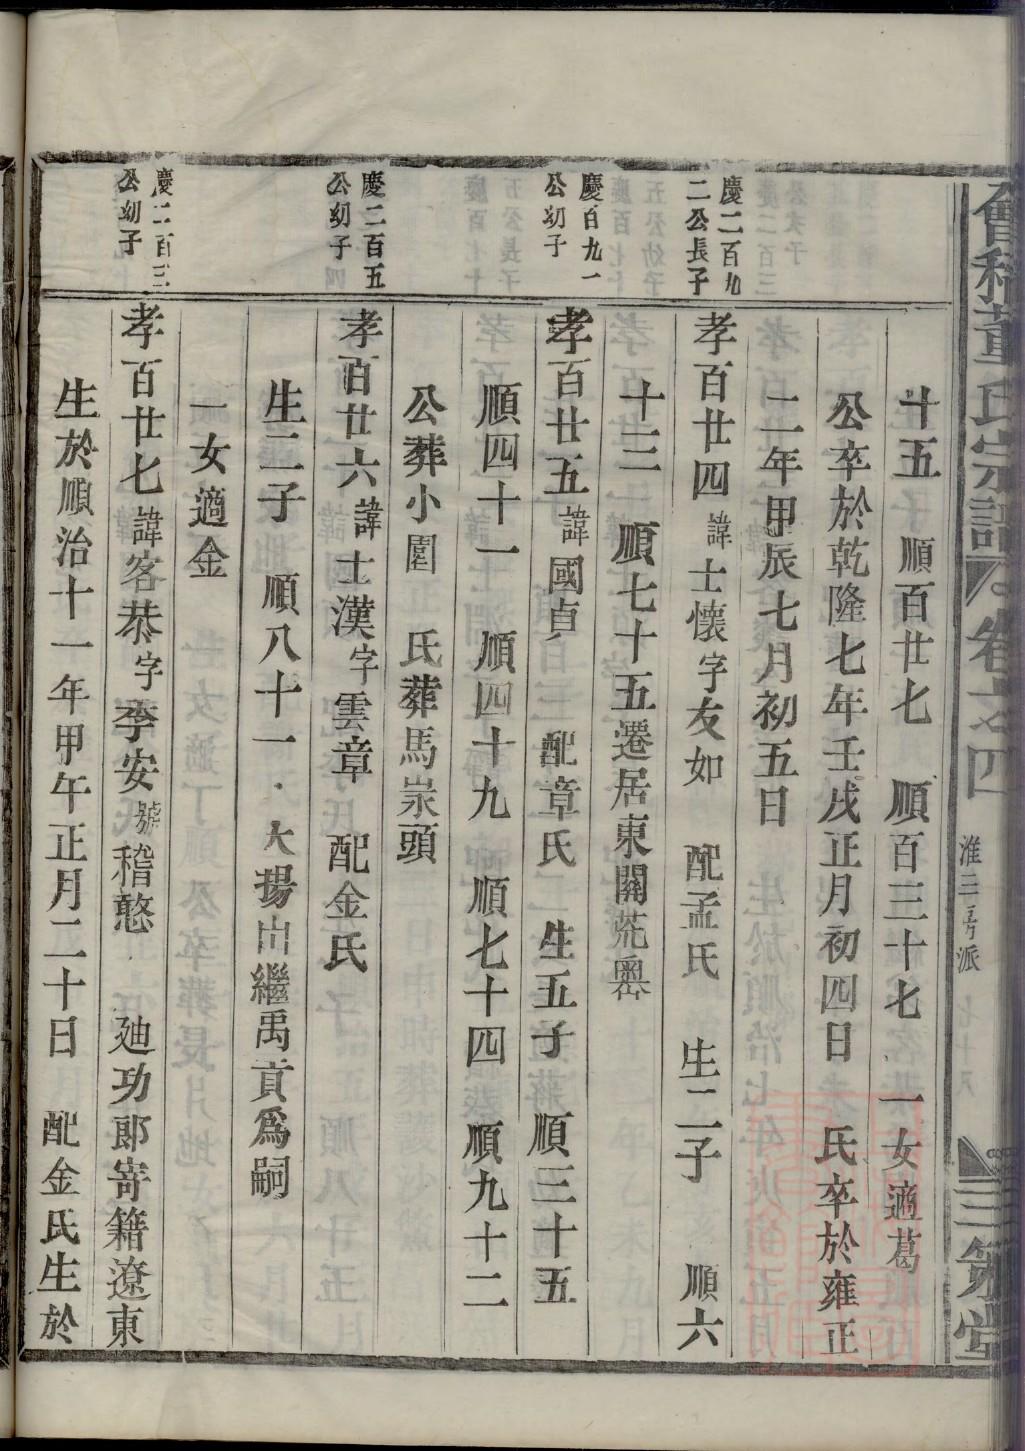 會稽董氏宗譜 卷之四 淮三房派 七十八 三策堂
廿五 順百廿七 順百三十七 一女適葛
公卒於乾隆七年壬戌正月初四日 氏卒於雍正
二年甲辰七月初五日
慶二百九二公長子
孝百廿四諱士懷字友如 配孟氏 生二子 順六
十三 順七十五遷居東關
慶百九一公幼子
孝百廿五諱國貞 配章氏 生五子 順三十五
順四十一 順四十九 順七十四 順九十二
公葬小圍 氏葬馬 頭
慶二百五公幼子
孝百廿六諱士漢字雲章 配金氏
生二子 順八十一 大揚出繼禹貢爲嗣
一女適金
慶二百三公幼子
孝百廿七諱客恭字季安號稽憨 廸功郎寄籍遼東
生於順治十一年甲午正月二十日 配金氏生於